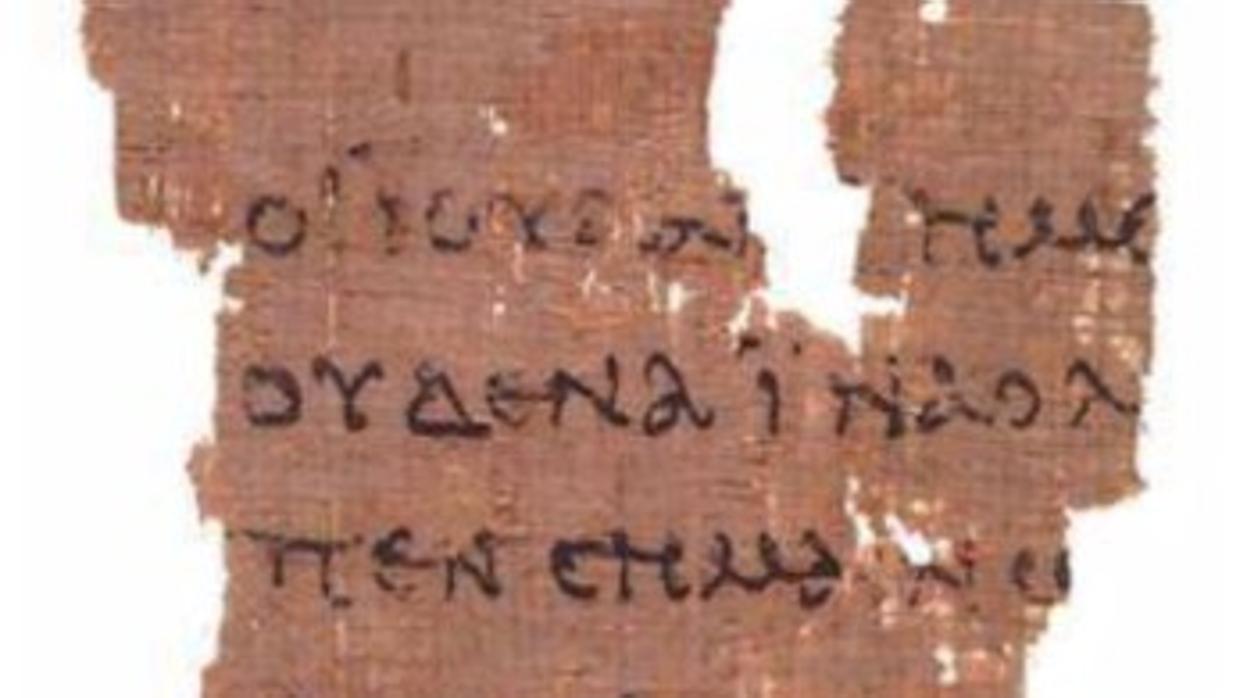 ΟΙ ΙΟΥΔΑΙ ΗΜΕ
ΟΥΔΕΝΑ ΪΝΑ Ο Λ
ΠΕΝ ϹΗΜΑΙΝΩ